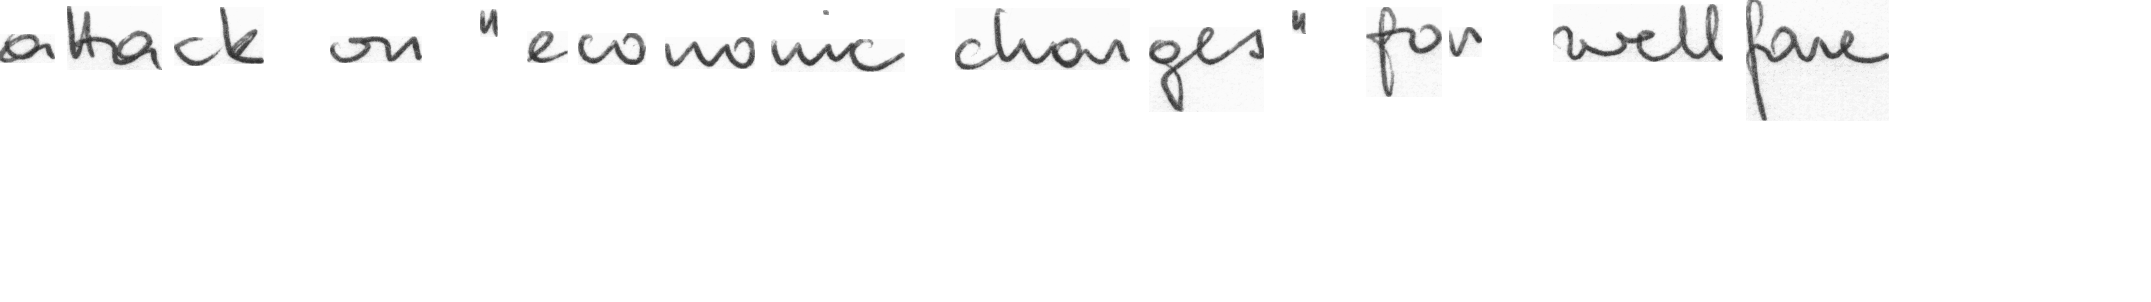 attack on "economic changes" for wellfare